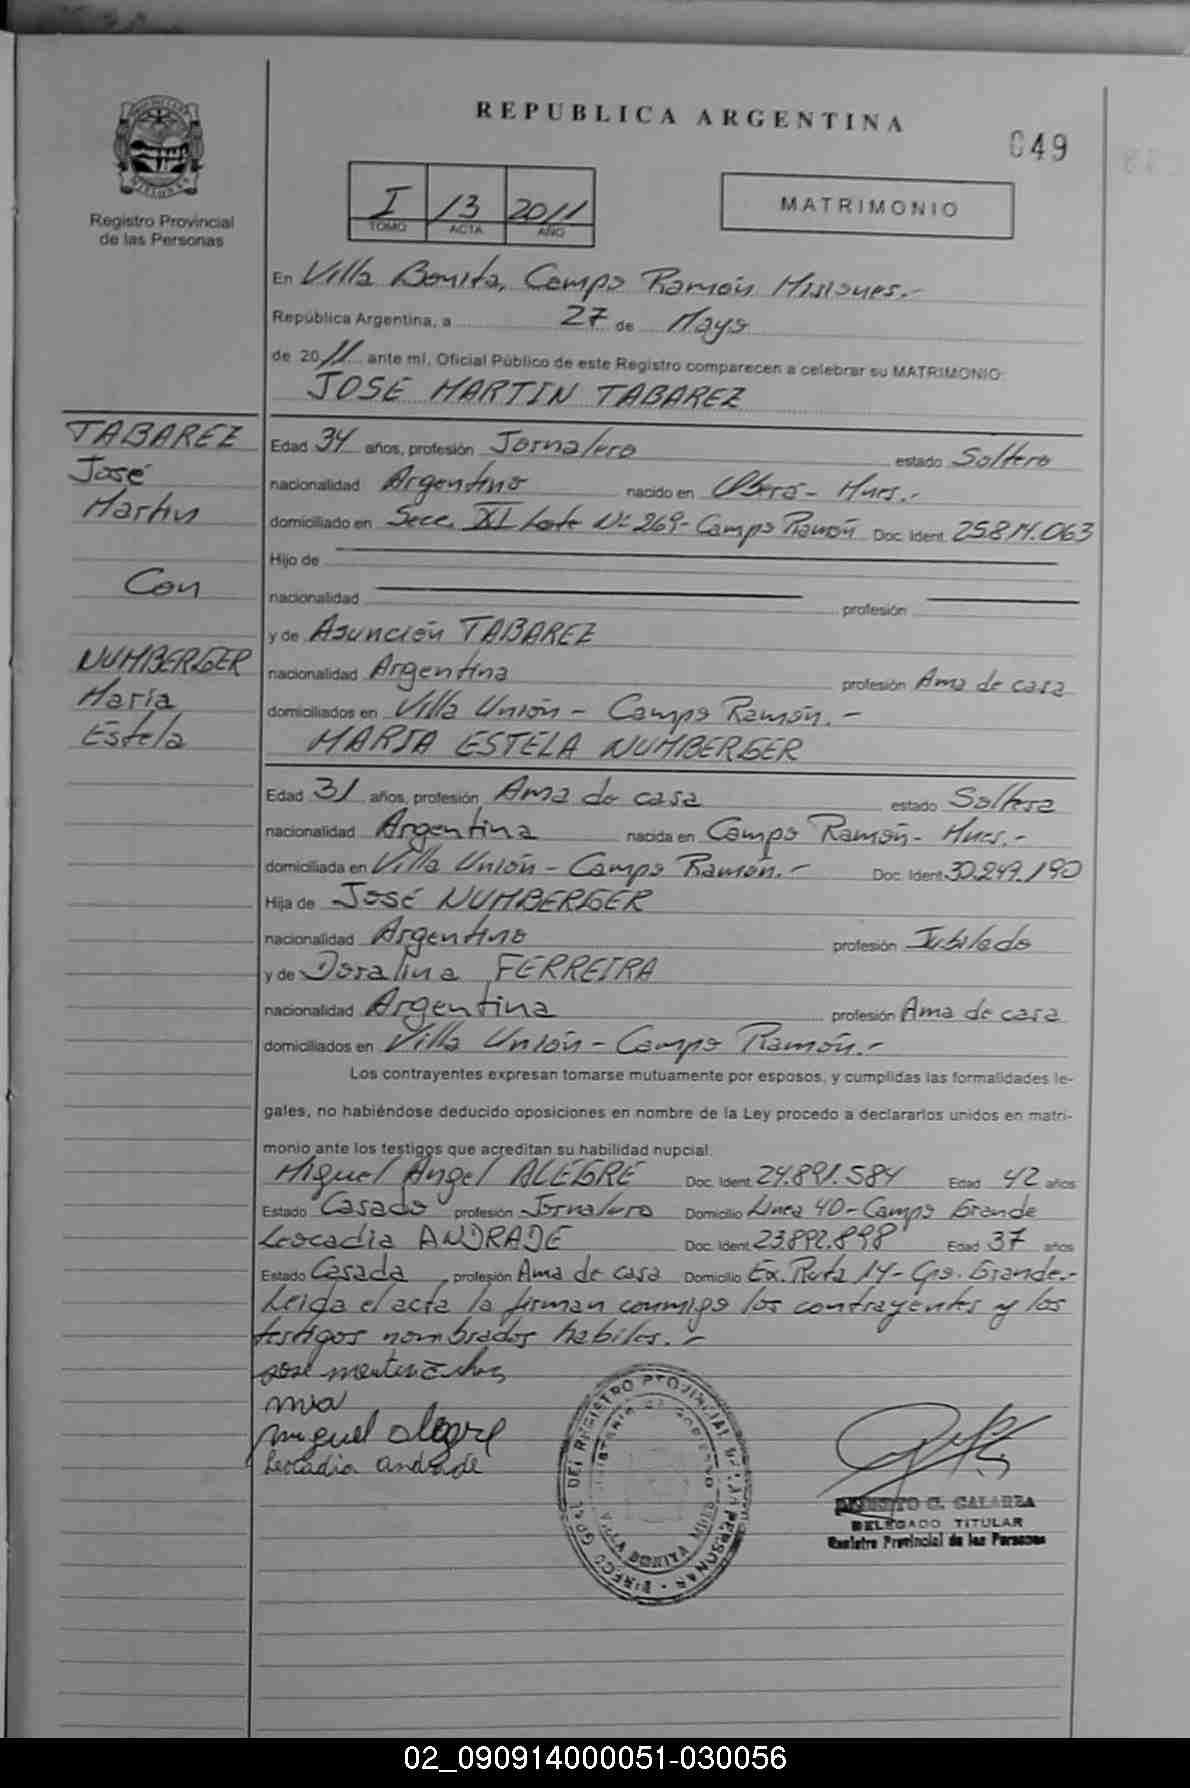 REPUBLICA ARGENTINA
049
Registro Provincial
de las Personas
I 13 2011
TOMO ACTA AÑO
MATRIMONIO
En Villa Bonita, Campo Ramón Misiones.-
República Argentina, a 27 de Mayo
de 2011 ante mí, Oficial Público de este Registro comparecen a celebrar su MATRIMONIO:
JOSE MARTIN TABAREZ
TABAREZ
José
Martin
Con
NUMBERGER
Maria
Estela
Edad 34 años, profesión Jornalero estado Soltero
nacionalidad Argentino nacido en Oberá - Mnes.-
domiciliado en Secc. XI Lote Nº 269 - Campo Ramón Doc. Ident. 25.814.063
Hijo de
nacionalidad profesión
y de Asunción TABAREZ
nacionalidad Argentina profesión Ama de casa
domiciliados en Villa Unión - Campo Ramón.-
MARIA ESTELA NUMBERGER
Edad 31 años, profesión Ama de casa estado Soltera
nacionalidad Argentina nacida en Campo Ramón - Mnes.-
domiciliada en Villa Unión - Campo Ramón.- Doc. Ident. 30.249.190
Hija de José NUMBERGER
nacionalidad Argentino profesión Jubilado
y de Doralina FERREIRA
nacionalidad Argentina profesión Ama de casa
domiciliados en Villa Unión - Campo Ramón.-
Los contrayentes expresan tomarse mutuamente por esposos, y cumplidas las formalidades le-
gales, no habiéndose deducido oposiciones en nombre de la Ley procedo a declararlos unidos en matri-
monio ante los testigos que acreditan su habilidad nupcial.
Miguel Angel ALEGRE Doc. Ident. 24.891.584 Edad 42 años
Estado Casado profesión Jornalero Domicilio Linea 40 - Campo Grande
Leocadia ANDRADE Doc. Ident. 23.892.898 Edad 37 años
Estado Casada profesión Ama de casa Domicilio Ex. Ruta 14 - Cpo. Grande.-
Leida el acta la firman conmigo los contrayentes y los
testigos nombrados habiles.-
miguel alegre
Leocadia andrade
DIRECC. GRAL DEL REGISTRO PROVINCIAL DE LAS PERSONAS
MINISTERIO DE GOBIERNO
VILLA BONITA
G. GALARZA
DELEGADO TITULAR
Registro Provincial de las Personas
02_090914000051-030056